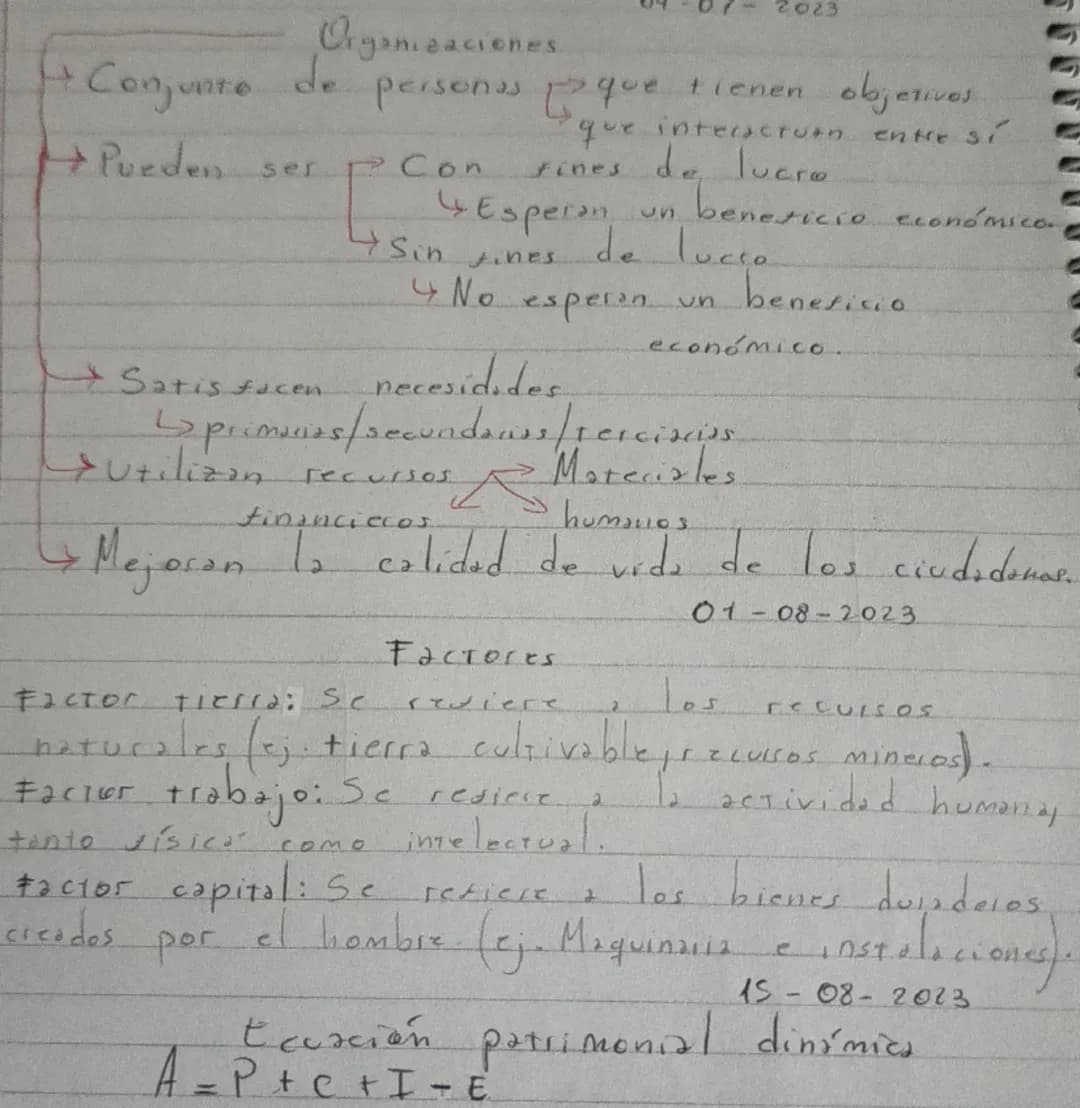 2023
Organizaciones
Conjunto de personas que tienen objetivos
que interactuan entre sí
Pueden ser Con fines de lucro
Esperan un beneficio económico.
Sin fines de lucro
No esperan un beneficio
económico.
Satisfacen necesidades
primarias/secundarias/terciarias
Utilizan recursos Materiales
financieros humanos
Mejoran la calidad de vida de los ciudadanos.
01-08-2023
Factores
Factor tierra: Se refiere a los recursos
naturales (ej. tierra cultivable, recursos mineros).
Factor trabajo: Se refiere a la actividad humana,
tanto física como intelectual.
Factor capital: Se refiere a los bienes duraderos
creados por el hombre. (ej. Maquinaria e instalaciones).
15-08-2023
Ecuación patrimonial dinámica
A = P + C + I - E